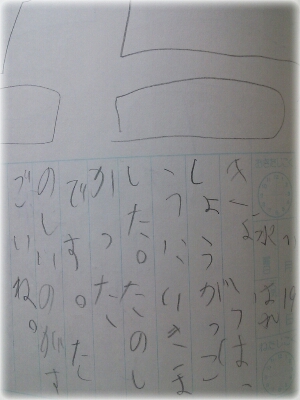 19
水 はれ
きょうは、
しょうがっこ
うにいきま
した。たのし
かった
です。た
のしいのがす
ごいね。